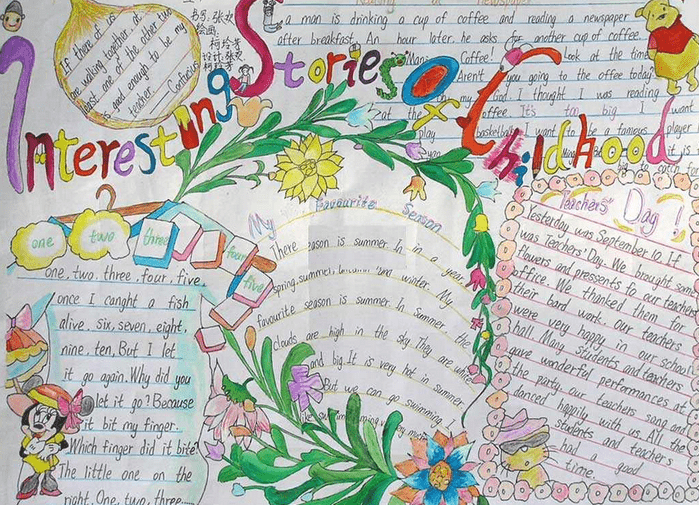 Reading at newspaper
a man is drinking a cup of coffee and reading a newspaper
after breakfast. An hour later, he asks for another cup of coffee.
Coffee! Look at the time
Aren't you going to the office today
my God. I thought I was reading
at the office It's too big I want
play basketball. I want to be a famous player
If there are
me walking together, at
least one of the other two
is good enough to be my
teacher. Confucius
书写: 张
绘画:
柯
设计: 张
柯
Interesting Stories Of Childhood
one two three four five
one, two, three, four, five,
once I canght a fish
alive, six, seven, eight,
nine, ten, But I let
it go again. Why did you
let it go? Because
it bit my finger.
Which finger did it bite
The little one on the
right. One, two, three......
My Favourite Season
There season is summer. In in a year,
spring, summer, and winter. My
favourite season is summer. In summer the
clouds are high in the sky. They are white
and big. It is very hot in summer.
But we can go swimming. I
like swimming very much
Teachers' Day!
Yesterday was September 10. If
was Teachers' Day. We brought some
flowers and pressents fo our teachers
office. We thanked them for
their bard work. Our teachers
were very happy in our school
hall. Many students and teachers
gave wonderful performances at
the party. Our teachers song and
danced happily with us. All the
students and teachers
had a good
time.